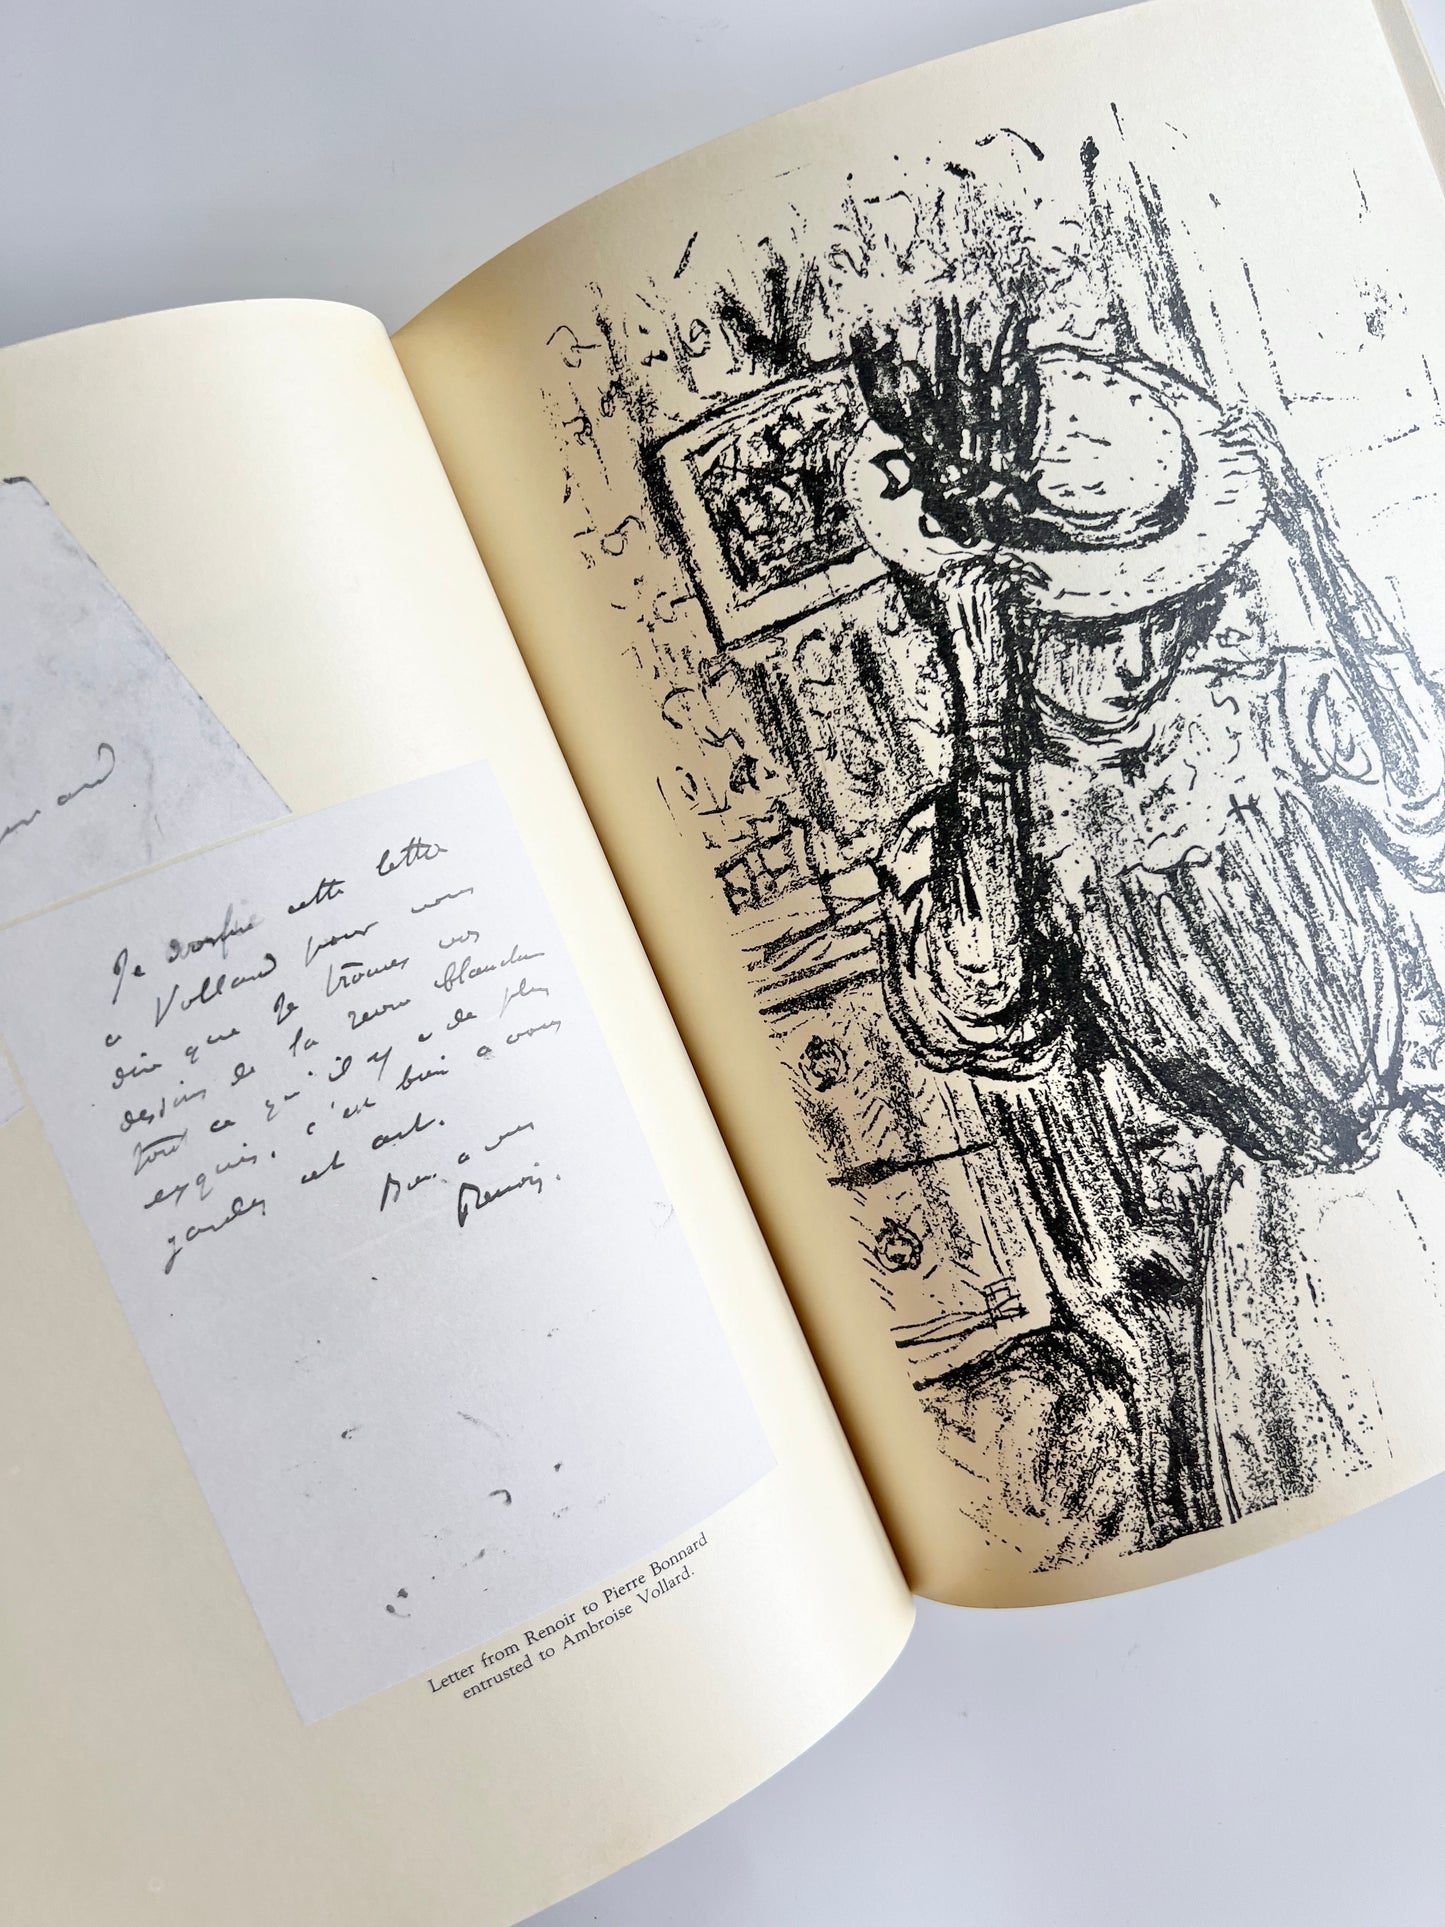 Je confie cette lettre
a Vollard pour vous
dire que je trouves vos
dessins de la revue blanche
tout ce qu'il y a de plus
exquis. c'est bien a vous
gardez cet art.
a vous
Renoir.
Letter from Renoir to Pierre Bonnard
entrusted to Ambroise Vollard.